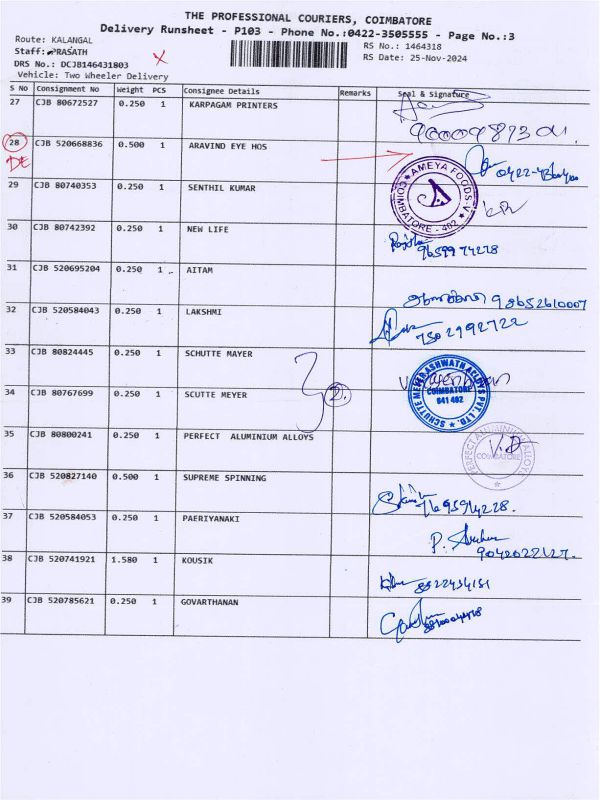 THE PROFESSIONAL COURIERS, COIMBATORE
Delivery Runsheet - P103 - Phone No.:0422-3505555 - Page No.:3
Route: KALANGAL
Staff: PRASATH
DRS No.: DCJB146431803
Vehicle: Two Wheeler Delivery
RS No.: 1464318
RS Date: 25-Nov-2024
S No Consignment No Weight PCS Consignee Details Remarks Seal & Signature
27 CJB 80672527 0.250 1 KARPAGAM PRINTERS
28 CJB 520668836 0.500 1 ARAVIND EYE HOS
DE
AMEYA FOODS
COIMBATORE - 402
29 CJB 80740353 0.250 1 SENTHIL KUMAR
30 CJB 80742392 0.250 1 NEW LIFE
9659974278
31 CJB 520695204 0.250 1 AITAM
98652610007
32 CJB 520584043 0.250 1 LAKSHMI
7502992722
33 CJB 80824445 0.250 1 SCHUTTE MAYER
34 CJB 80767699 0.250 1 SCUTTE MEYER
2
SCHUTTE MEYER ASHWATH ALLOYS PVT. LTD.
COIMBATORE
641 402
35 CJB 80800241 0.250 1 PERFECT ALUMINIUM ALLOYS
PERFECT ALUMINIUM ALLOYS
COIMBATORE
36 CJB 520827140 0.500 1 SUPREME SPINNING
7695974228.
37 CJB 520584053 0.250 1 PAERIYANAKI
38 CJB 520741921 1.580 1 KOUSIK
39 CJB 520785621 0.250 1 GOVARTHANAN